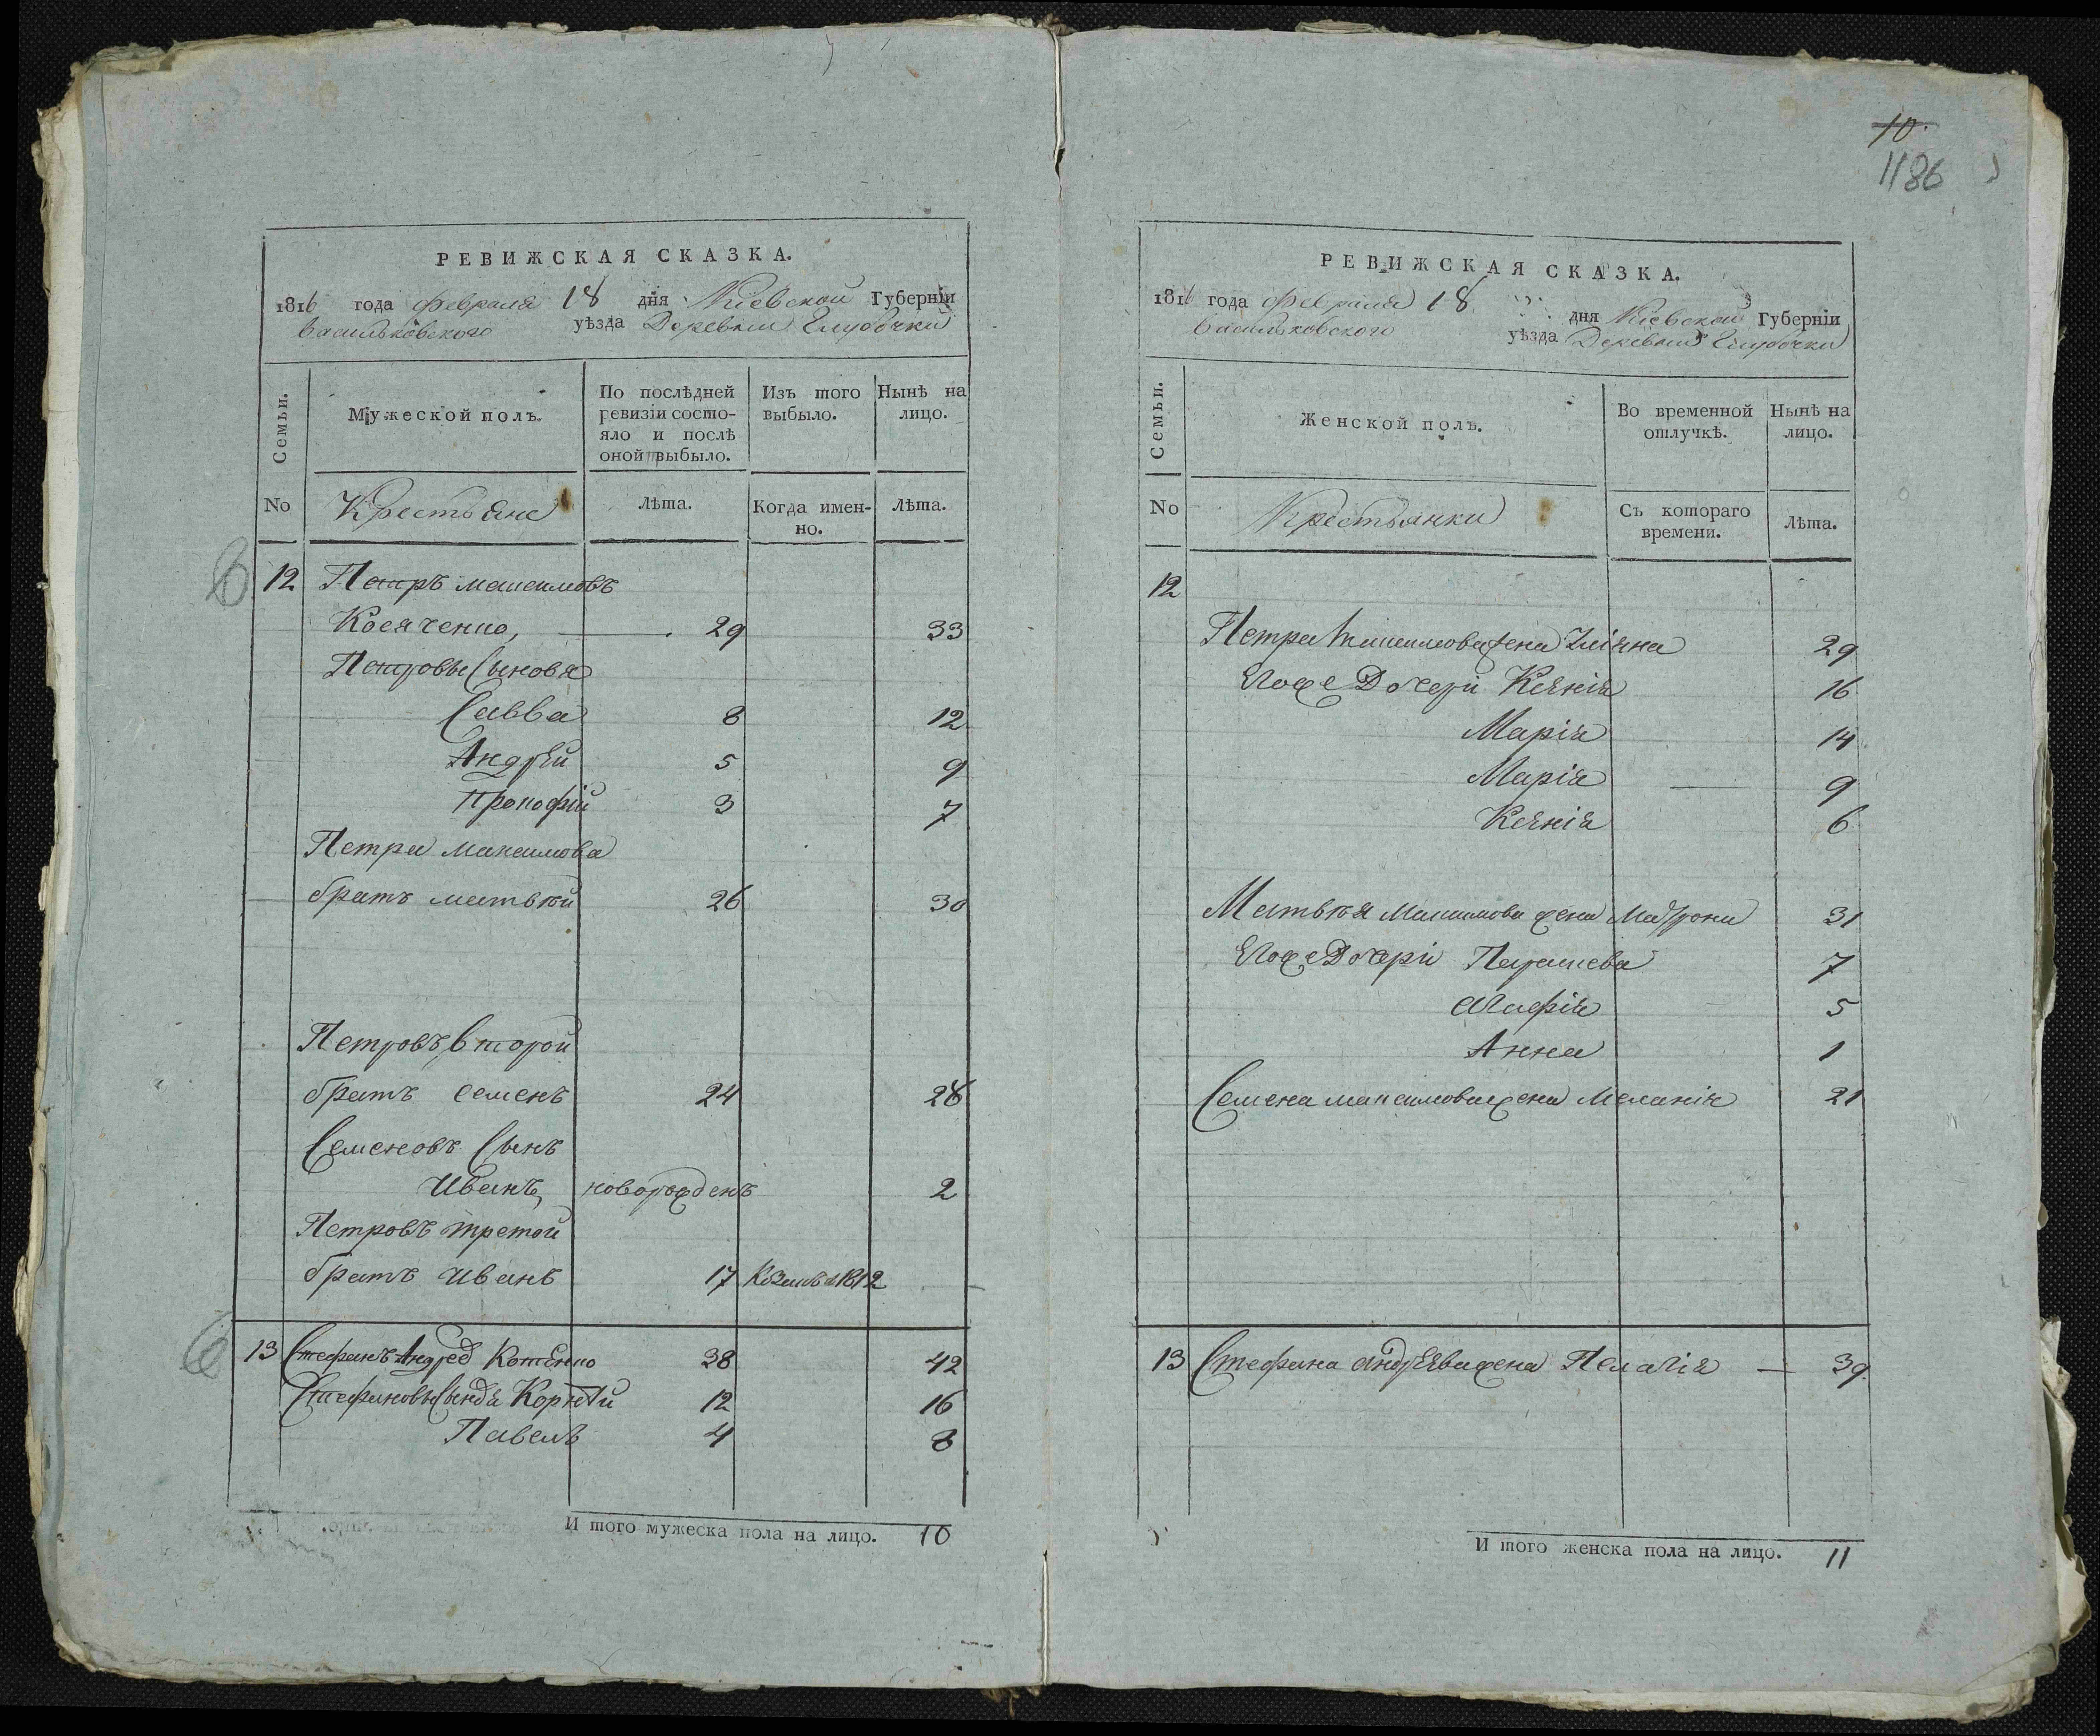 РЕВИЖСКАЯ СКАЗКА.
1816 года Февраля 18 дня Кіевской Губерніи
Васильковского уѣзда Деревни Глубочки
Семьи.
Мужеской полъ.
По послѣдней ревизіи состо-
яло и послѣ оной выбыло.
Изъ того выбыло.
Нынѣ на лицо.
No
Крестьяне
Лѣта.
Когда имен-
но.
Лѣта.
12 Петръ Максимовъ
Косяченко, 29 33
Петровы Сыновя
Савва 8 12
Андрѣй 5 9
Прокофій 3 7
Петра Максимова
братъ матвѣй 26 30
Петровъ Второй
братъ семенъ 24 28
Семеновъ Сынъ
Иванъ, новорожденъ 2
Петровъ третой
братъ Иванъ 17 1812
13 Стефанъ Котенко 38 42
Стефановы Корнѣй 12 16
Павелъ 4 8
И того мужеска пола на лицо. 10
10.
1186
РЕВИЖСКАЯ СКАЗКА.
1816 года Февраля 18 дня Кіевской Губерніи
Васильковского уѣзда Деревни Глубочки
Семьи.
Женской полъ.
Во временной отлучкѣ.
Нынѣ на лицо.
No
Крестьянки
Съ котораго времени.
Лѣта.
12
Петра Максимова жена 29
Егоже Дочери Ксенія 16
Марія 14
Марія 9
Ксенія 6
Матвѣя Максимова жена Матрона 31
Егоже Дочери Параскева 7
Агафія 5
Анна 1
Семена максимова жена Меланія 21
13 Стефана андрѣева жена Пелагія 39
И того женска пола на лицо. 11